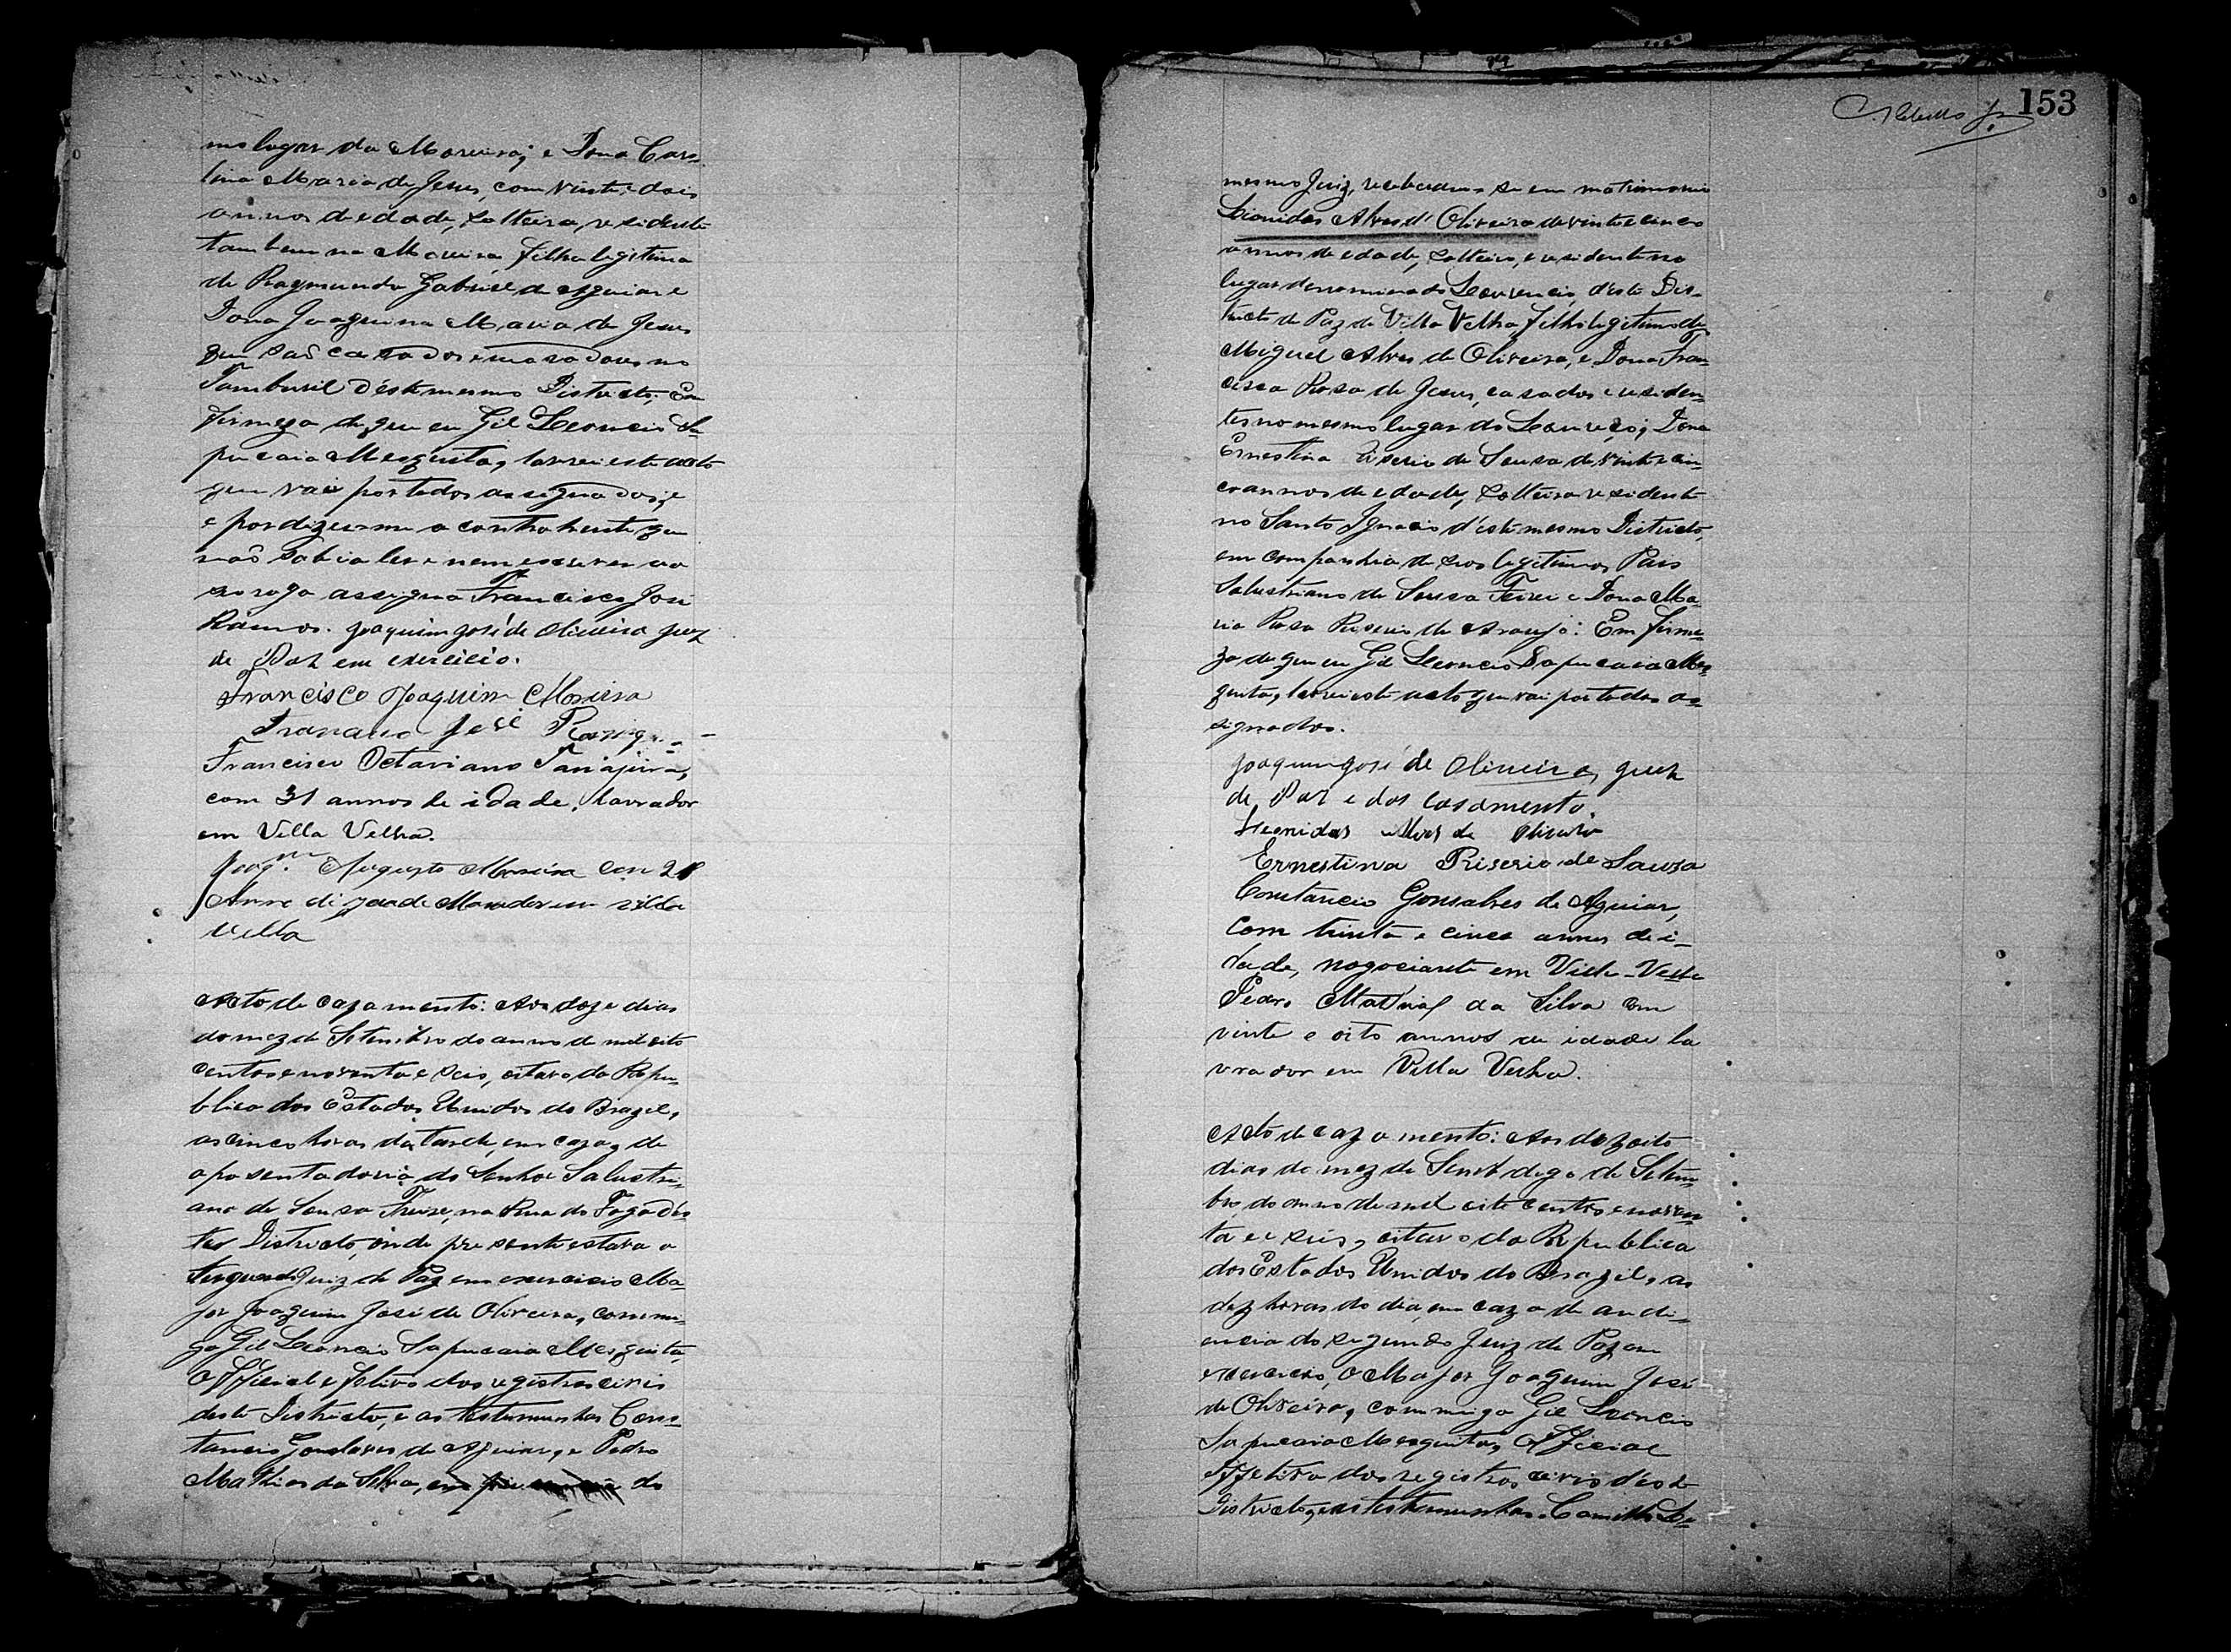 mo lugar da Moreira; e Dona Caro-
lina Maria de Jesus, com vinte e dois
annos de edade, solteira, residente
tambem na Moreira, filha legitima
de Raymundo Gabriel de Aguiar e
Dona Joaquina Maria de Jesus
que saõ casados e moradores no
Tamburil d'este mesmo Districto; Em
firmeza de que eu Gil Leoncio Sa-
pucaia Mesquita, lavrei este acto
que vai por todos assignados, e
e por dizer-me a contrahente que
naõ sabia ler e nem escrever ao
seo rogo assigna Francisco José
Ramos. Joaquim José de Oliveira Juiz
de Paz em exercicio.
Francisco Joaquim Moreira
José
Francisco Octaviano Tanajura,
com 31 annos de idade, lavrador
em Villa Velha.
Joaqm. Augusto Moreira com 28
Anno di Morador em villa
Vella
Acto de cazamento: Aos doze dias
do mez de Setembro do anno de mil oito
centos e noventa e seis, oitavo da Repu-
blica dos Estados Unidos do Brazil,
as cinco horas da tarde, em caza, de
aposentadoria do Senhor Salustri-
ano de Sousa Freire, na Rua do Fogo d'es-
tes Districto, onde presente estava o
segundo Juiz de Paz em exercicio Ma-
jor Joaquim José de Oliveira, commi-
go Gil Leoncio Sapucaia Mesquita,
Official efetivo dos registros civis
deste Districto, e as testemunhas Cons-
tancio Gonsalves de Aguiar, e Pedro
Mathias da Silva, em do
153
mesmo Juiz, receberam-se em matrimonio
Leonidas Alves d'Oliveira de vinte e cinco
annos de edade, solteiro, e residente no
lugar denominado Lourencio, d'este Dis-
tricto de Paz de Villa Velha, filho legitimo de
Miguel Alves de Oliveira, e Dona Fran-
cisca Rosa de Jesus, casados e residen-
tes no mesmo lugar do Dona
Ernestina Riserio de Sousa de vinte e cin-
co annos de edade, solteira residente
no Santo Ignacio d'este mesmo Districto,
em companhia de seos legitimos Pais
Salustriano de Sousa Freire e Dona Ma-
ria Rosa Riserio de Araujo: Em firme-
za de que eu Gil Leoncio Sapucaia Mes-
quita, lavrei este acto que vai por todos as-
signados.
Joaquim José de Oliveira, Juiz
de Paz e dos Casamento.
Leonidas Alves de Oliveira
Ernestina Riserio de Souza
Constancio Gonsalves de Aguiar,
com trinta e cinco annos de i-
dade, negociante em Villa-Velha
Pedro Mathias da Silva com
vinte e oito annos de idade la
vrador em Villa Velha.
Acto de cazamento: Aos dezoito
dias do mez de digo de Setem-
bro do anno de mil oito centos e noven-
ta e seis, oitavo da Republica
dos Estados Unidos do Brazil, as
dez horas do dia, em caza de audi-
encia do segundo Juiz de Paz em
exercicio, o Major Joaquim José
de Oliveira, commigo Gil Leoncio
Sapucaia Mesquita, Official
effetivo dos registros civis d'este
Districto, e as testemunhas Camillo Le-